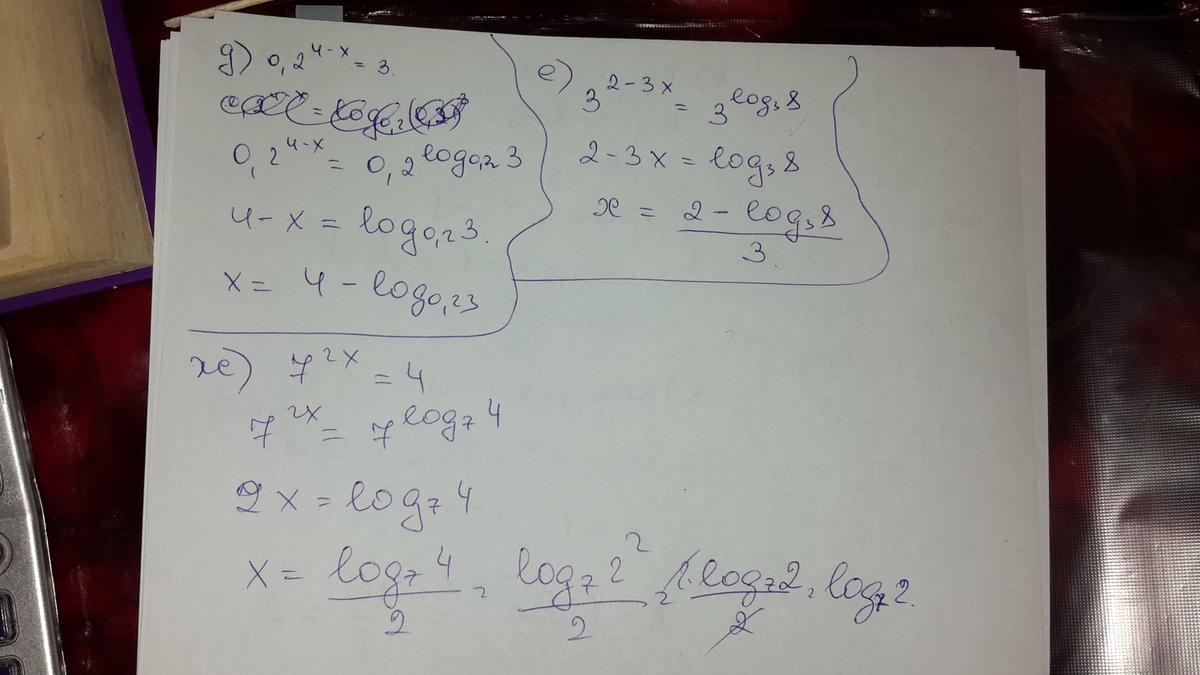 д) 0,2^{4-x} = 3.
0,2^{4-x} = 0,2^{log_{0,2} 3}
4 - x = log_{0,2} 3.
x = 4 - log_{0,2} 3
е) 3^{2-3x} = 3^{log_3 8}
2 - 3x = log_3 8
x = \frac{2 - log_3 8}{3}.
ж) 7^{2x} = 4
7^{2x} = 7^{log_7 4}
2x = log_7 4
x = \frac{log_7 4}{2} = \frac{log_7 2^2}{2} = \frac{2·log_7 2}{2} = log_7 2.